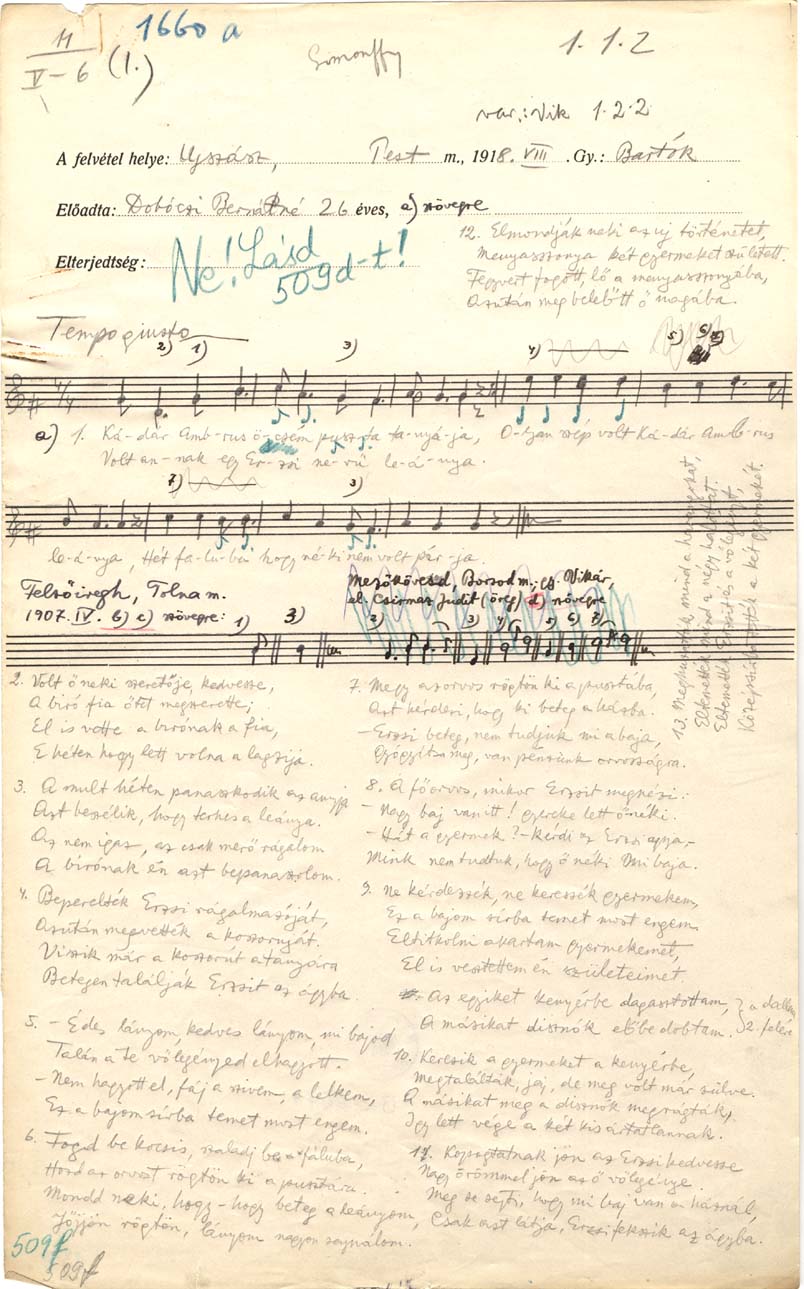 11
V-6 (1.)
1660 a
Simonffy
1.1.2
var.: Vik 1.2.2
A felvétel helye: Ujszász, Pest m., 1918. VIII. Gy.: Bartók
Előadta: Dobóczi Bernátné 26 éves, a) szövegre
Elterjedtség:
Ne! Lásd
509d-t!
12. Elmondják neki az uj történetet,
Menyasszonya két gyermeket született.
Fegyvert fogott, lő a menyasszonyába,
Azután meg belelőtt ő magába.
Tempo giusto
2) 1) 3) 4) 5) 6) 7)
a) 1. Ká-dár Amb-rus ö-csém puszta ta-nyá-ja, O-lyan szép volt Ká-dár Amb-rus
Volt an-nak egy Er-zsi ne-vű le-á-nya.
7) 3)
le-á-nya, Hét fa-lu-ba hogy né-ki nem volt pár-ja.
Felsőiregh, Tolna m.
1907. IV. b) c) szövegre: 1) 3)
Mezőkövesd, Borsod m.; gy. Vikár,
el. Csirmaz Judit (öreg) d) szövegre
2) 3) 4) 5) 6) 7)
13. Meghuzatták mind a harangokat,
Eltemették mind a négy halottat.
Eltemették Erzsit és a vőlegényt,
Középre tették a két gyermekét.
2. Volt ő neki szeretője, kedvesse,
A biró fia őtet megszerette;
El is vette a birónak a fia,
E héten hogy lett volna a lagzija.
3. A mult héten panaszkodik az anyja
Azt beszélik, hogy terhes a leánya.
Az nem igaz, az csak merő rágalom
A birónak én azt bepanaszolom.
4. Beperelték Erzsi rágalmazóját,
Azután megvették a koszoruját.
Viszik már a koszorút a tanyára
Betegen találják Erzsit az ágyba.
5. - Édes lányom, kedves lányom, mi bajod
Talán a te vőlegényed elhagyott.
- Nem hagyott el, fáj a szivem, a lelkem,
Ez a bajom sírba temet most engem.
6. Fogd be kocsis, szaladj be a faluba,
Hozd az orvost rögtön ki a pusztára.
Mondd neki, hogy-hogy beteg a leányom,
Jöjjön rögtön, lányom nagyon sajnálom.
7. Megy az orvos rögtön ki a pusztába,
Azt kérdezi, hogy ki beteg a házba.
- Erzsi beteg, nem tudjuk mi a baja,
Gyógyítsa meg, van pénzünk orvosságra.
8. A főorvos, mikor Erzsit megnézi:
- Nagy baj van itt! gyereke lett őnéki.
- Hát a gyermek? - kérdi az Erzsi apja, -
Mink nem tudtuk, hogy ő néki mi baja.
9. Ne kérdezzék, ne keressék gyermekem,
Ez a bajom sírba temet most engem.
Eltitkolni akartam gyermekemet,
El is vesztettem én születeimet.
Az egyiket kenyérbe dagasztottam, } a dallam
A másikat disznók elébe dobtam. } 2. felére
10. Keresik a gyermeket a kenyérbe,
Megtalálták, jaj, de meg volt már sülve.
A másikat meg a disznók megrágták,
Igy lett vége a két kis ártatlannak.
11. Kopogtatnak jön az Erzsi kedvesse
Nagy örömmel jön az ő vőlegénye.
Meg se sejti, hogy mi baj van a háznál,
Csak azt látja, Erzsi fekszik az ágyba.
509f
509f